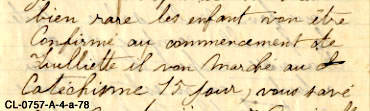 bien rare les enfant von être
Confirmé au commencement de
Juilliette il von marché au
Catéchisme 15 jour, vous savé
CL-0757-A-4-a-78